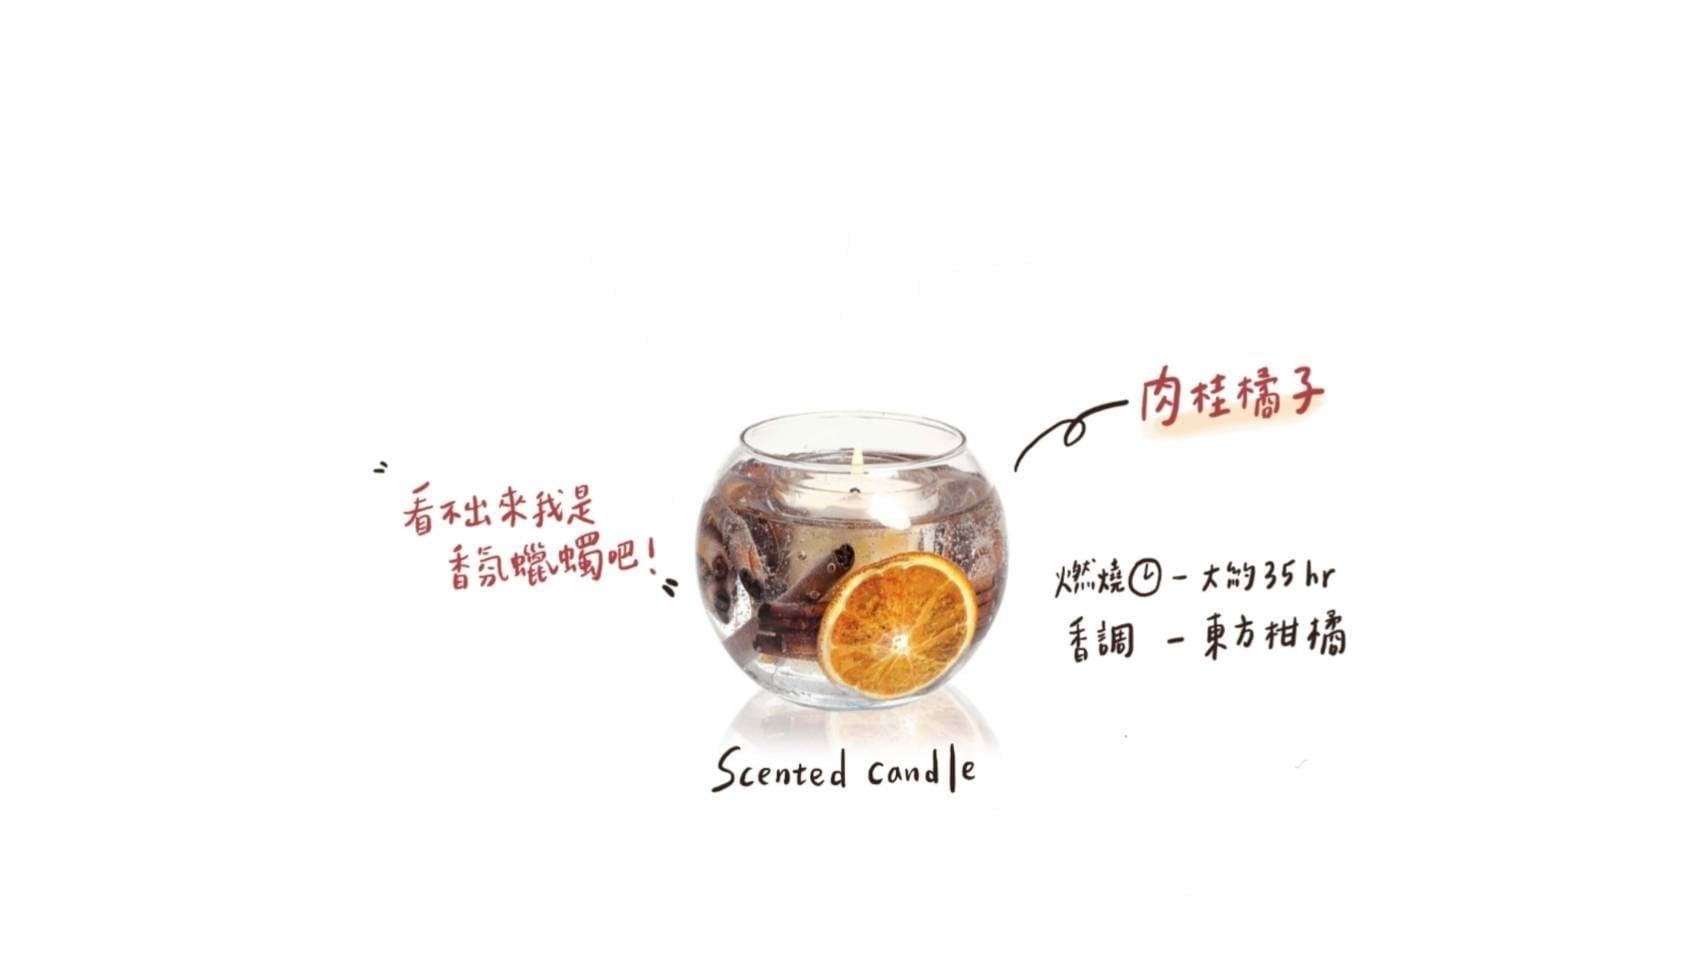 Special Goods
肉桂橘子
"看不出來我是
香氛蠟蠋吧!"
燃燒 - 大約35hr
香調 - 東方柑橘
Scented candle